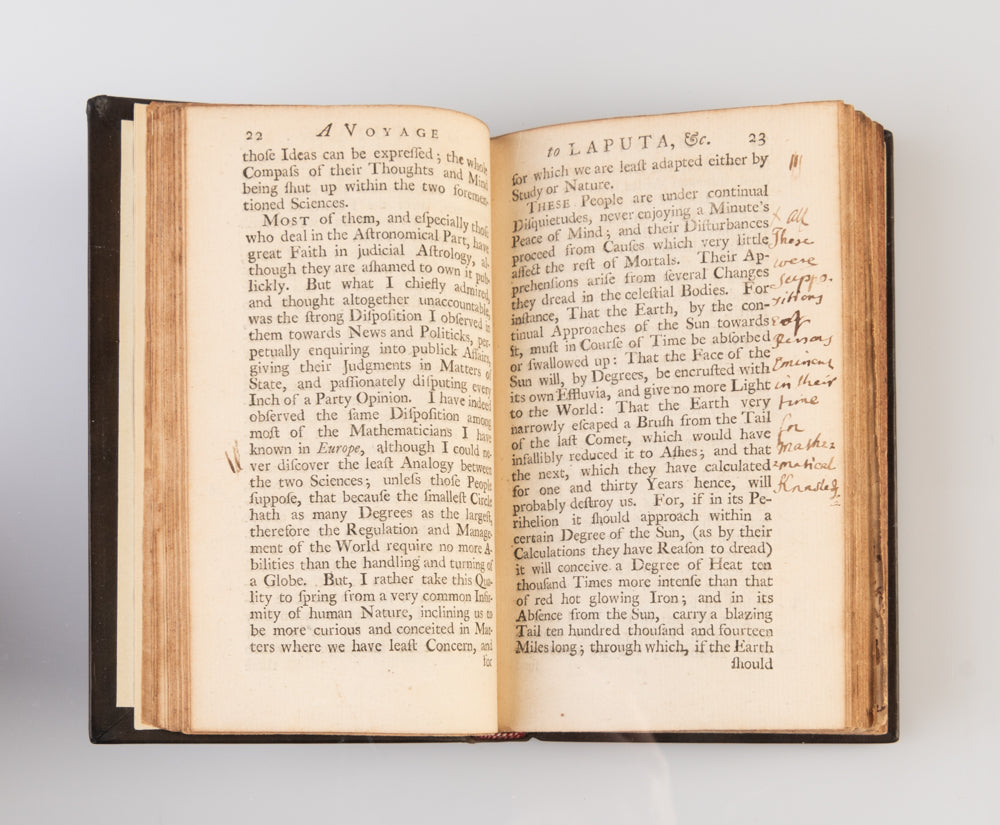 22 A VOYAGE
thoſe Ideas can be expreſſed; the whole
Compaſs of their Thoughts and Mind
being ſhut up within the two foremen-
tioned Sciences.
MOST of them, and eſpecially thoſe
who deal in the Aſtronomical Part, have
great Faith in judicial Aſtrology, al-
though they are aſhamed to own it pub-
lickly. But what I chiefly admired,
and thought altogether unaccountable,
was the ſtrong Diſpoſition I obſerved in
them towards News and Politicks, per-
petually enquiring into publick Affairs,
giving their Judgments in Matters of
State, and paſſionately diſputing every
Inch of a Party Opinion. I have indeed
obſerved the ſame Diſpoſition among
moſt of the Mathematicians I have
known in Europe, although I could ne-
ver diſcover the leaſt Analogy between
the two Sciences; unleſs thoſe People
ſuppoſe, that becauſe the ſmalleſt Circle
hath as many Degrees as the largeſt,
therefore the Regulation and Manage-
ment of the World require no more A-
bilities than the handling and turning of
a Globe. But, I rather take this Qua-
lity to ſpring from a very common Infir-
mity of human Nature, inclining us to
be more curious and conceited in Mat-
ters where we have leaſt Concern, and
for
to LAPUTA, &c. 23
for which we are leaſt adapted either by
Study or Nature.
THESE People are under continual
Diſquietudes, never enjoying a Minute's
Peace of Mind; and their Diſturbances
proceed from Cauſes which very little
affect the reſt of Mortals. Their Ap-
prehenſions ariſe from ſeveral Changes
they dread in the celeſtial Bodies. For
inſtance, That the Earth, by the con-
tinual Approaches of the Sun towards
it, muſt in Courſe of Time be abſorbed
or ſwallowed up: That the Face of the
Sun will, by Degrees, be encruſted with
its own Effluvia, and give no more Light
to the World: That the Earth very
narrowly eſcaped a Bruſh from the Tail
of the laſt Comet, which would have
infallibly reduced it to Aſhes; and that
the next, which they have calculated
for one and thirty Years hence, will
probably deſtroy us. For, if in its Pe-
rihelion it ſhould approach within a
certain Degree of the Sun, (as by their
Calculations they have Reaſon to dread)
it will conceive a Degree of Heat ten
thouſand Times more intenſe than that
of red hot glowing Iron; and in its
Abſence from the Sun, carry a blazing
Tail ten hundred thouſand and fourteen
Miles long; through which, if the Earth
ſhould
x all
These
were
Suppo-
sitions
of
Persons
Eminent
in their
time
for
Mathe-
matical